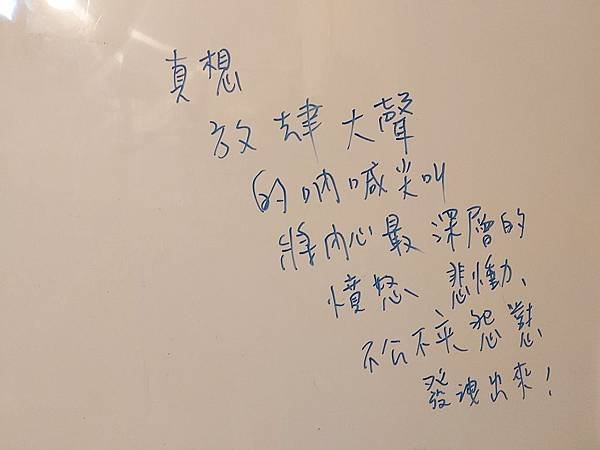 真想
放肆大聲
的吶喊尖叫
將內心最深層的
憤怒、悲慟、
不公不義怨懟
發洩出來!